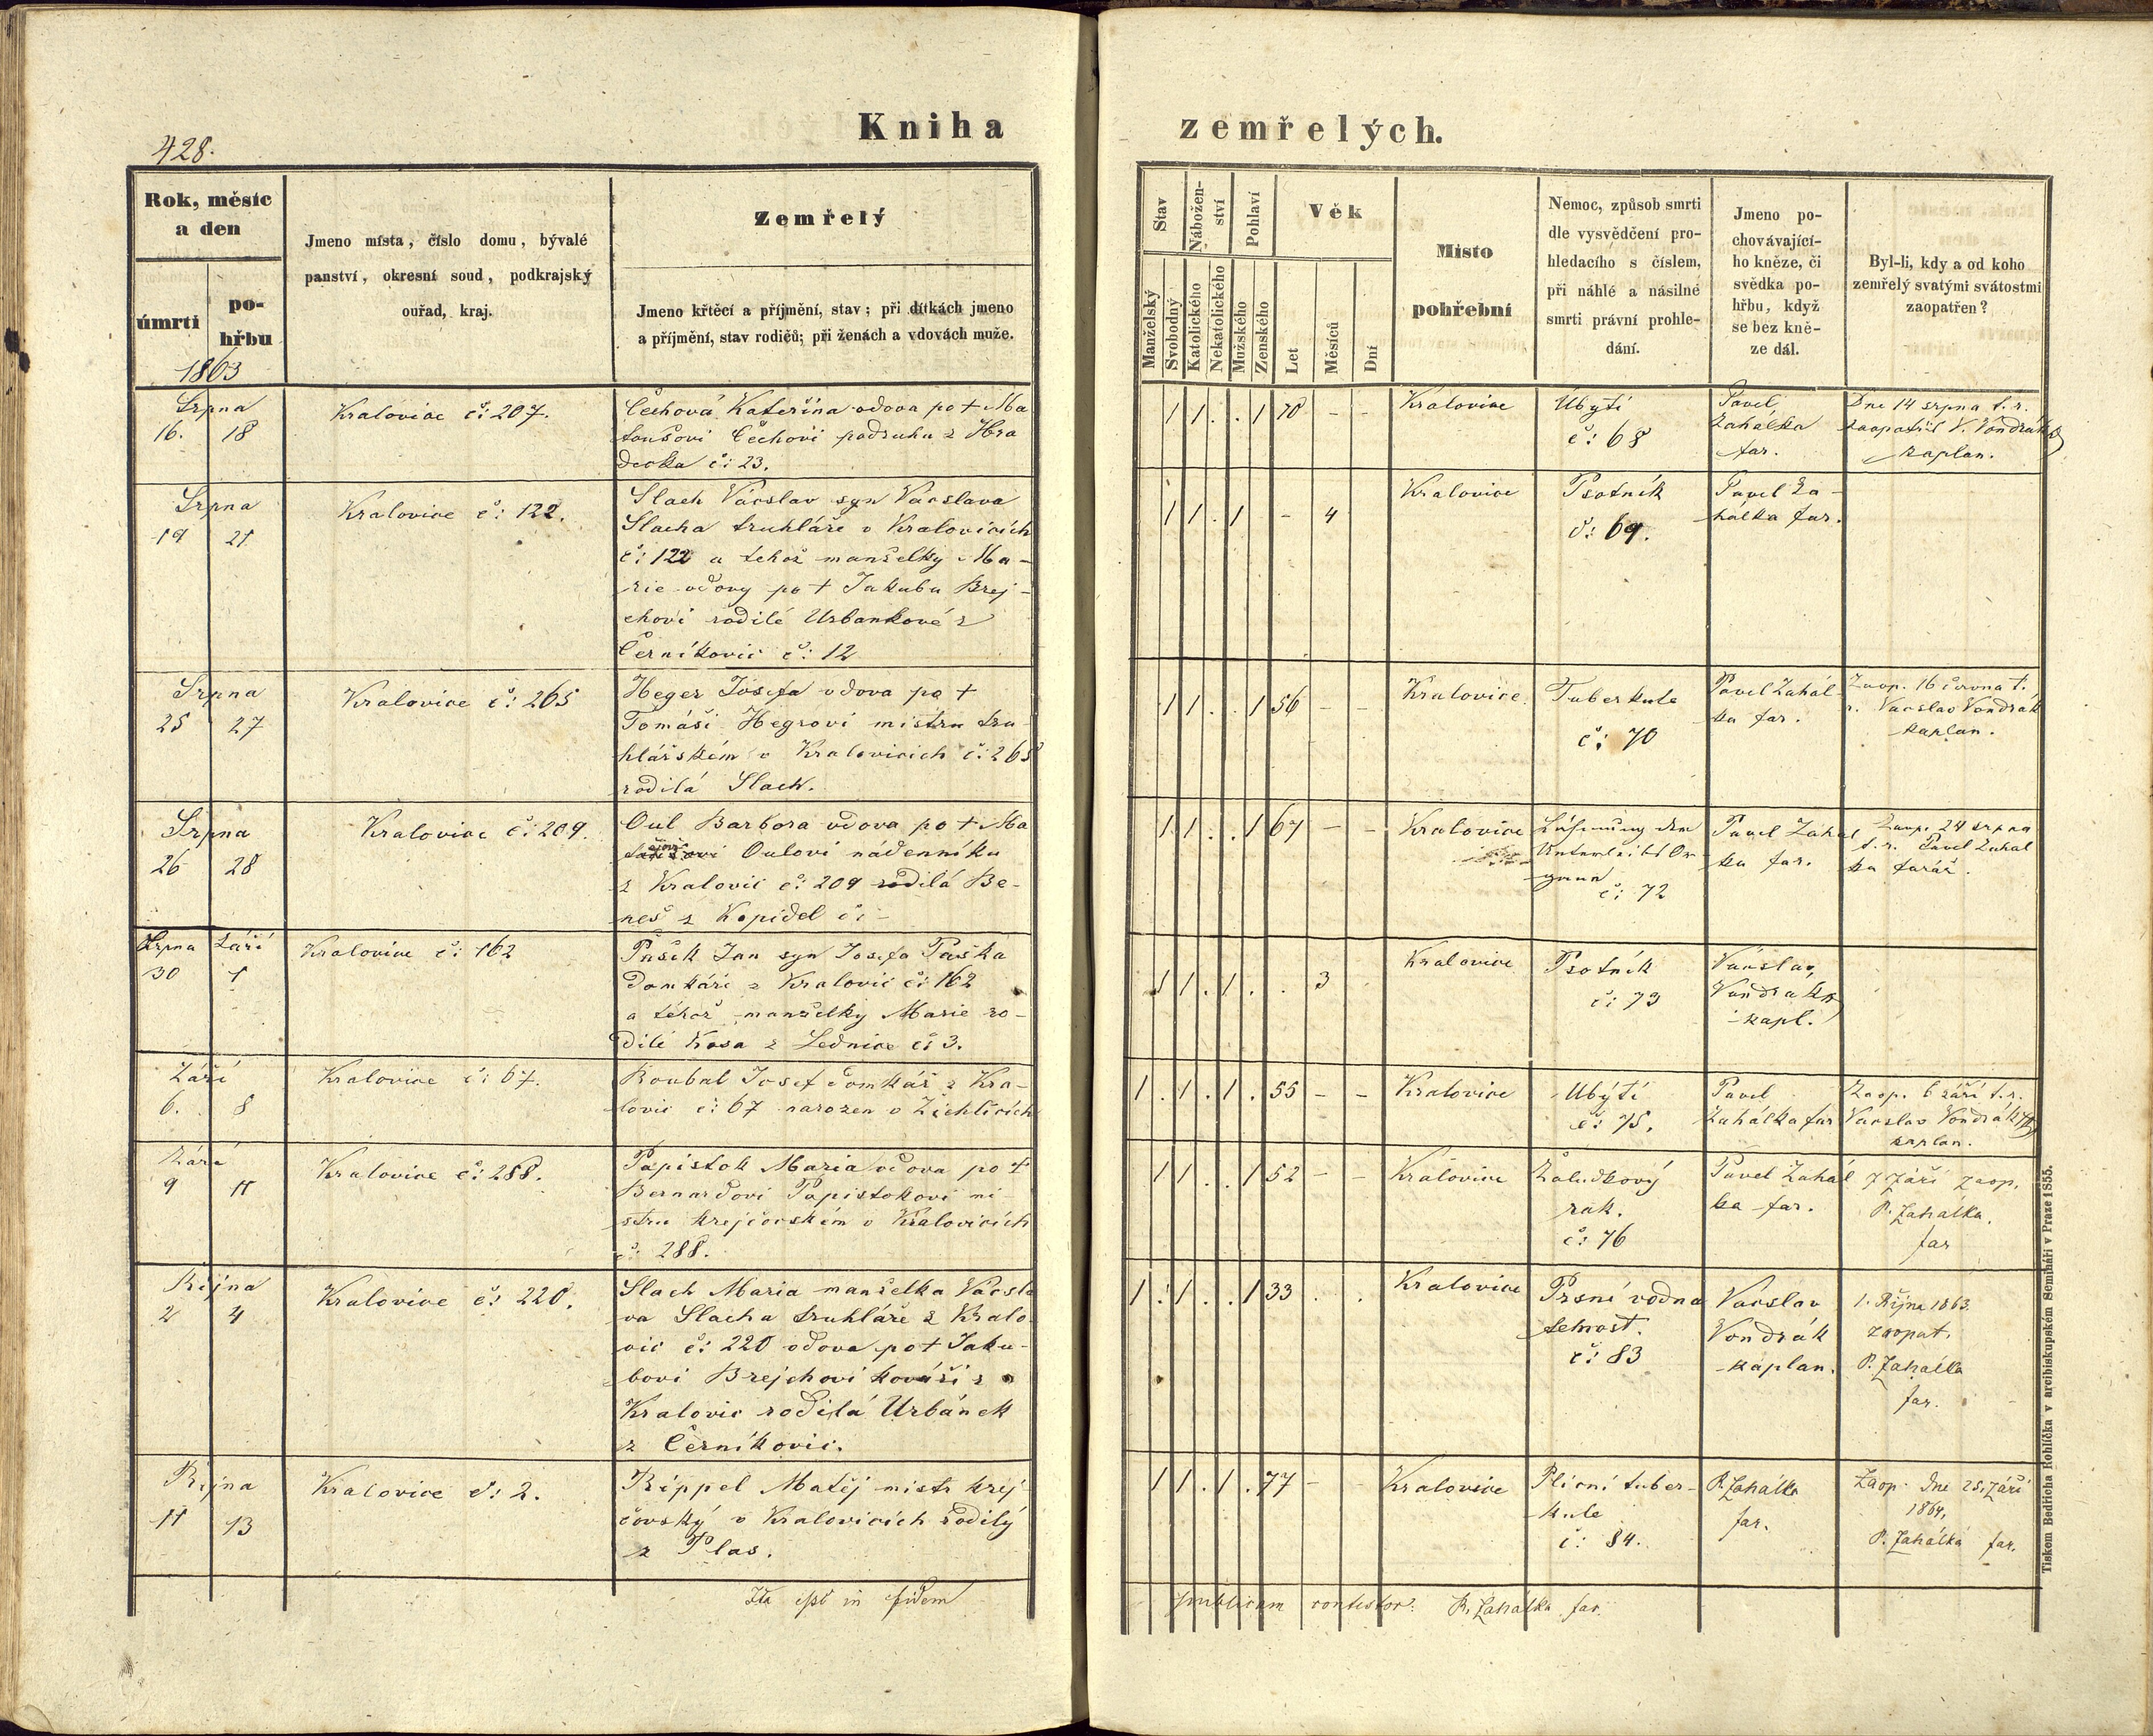 428.
Kniha
zemřelých.
Rok, měsíc
a den
úmrtí
po-
hřbu
1863
Jmeno místa, číslo domu, bývalé
panství, okresní soud, podkrajský
ouřad, kraj.
Zemřelý
Jmeno křtěcí a příjmění, stav; při dítkách jmeno
a příjmění, stav rodičů; při ženách a vdovách muže.
Stav
Manželský
Svobodný
Nábožen-
ství
Katolického
Nekatolického
Pohlaví
Mužského
Ženského
Věk
Let
Měsíců
Dní
Místo
pohřební
Nemoc, způsob smrti
dle vysvědčení pro-
hledacího s číslem,
při náhlé a násilné
smrti právní prohle-
dání.
Jmeno po-
chovávající-
ho kněze, či
svědka po-
hřbu, když
se bez kně-
ze dál.
Byl-li, kdy a od koho
zemřelý svatými svátostmi
zaopatřen?
Srpna
16. 18
Kralovice č: 207.
Čechová Kateřina vdova po + Ma
toušovi Čechovi podruhu z Hra
decka č: 23.
1 1 . . 1 70 - -
Kralovice
Ubytí
č: 68
Pavel
Zahálka
far.
Dne 14 srpna t. r.
zaopatřil V. Vondrák
kaplan.
Srpna
19 21
Kralovice č: 122.
Slach Václav syn Václava
Slacha truhláře v Kralovicích
č: 122 a tehož manželky Ma-
rie vdovy po + Jakubu Brej-
chovi rodilé Urbankové z
Černíkovic č: 12
1 1 . 1 - 4
Kralovice
Psotník
č: 69.
Pavel Za-
hálka far.
Srpna
25 27
Kralovice č: 265
Heger Josefa vdova po +
Tomáši Hegrovi mistru tru
hlářském v Kralovicích č: 265
rodilá Slach.
1 1 . . 1 56 - -
Kralovice
Tuberkule
č: 70
Pavel Zahál-
ka far.
Zaop. 16 června t.
r. Vacslav Vondrák
kaplan.
Srpna
26 28
Kralovice č: 209.
Oul Barbora vdova po + Ma
Oulovi nádenníku
z Kralovic č: 209 rodilá Be-
neš z Kopidel č: -
1 1 . . 1 67 - -
Kralovice
č: 72
Pavel Zahál
ka far.
Zaop. 24 srpna
t. r. Pavel Zahál
ka farář.
Srpna Září
30 1
Kralovice č: 162
Pašek Jan syn Josefa Paška
domkáře z Kralovic č: 162
a téhož manželky Marie ro-
dilé Kosa z Lednice č: 3.
1 1 . 1 . . 3
Kralovice
Psotník
č: 73
Václav
Vondrák
kapl.
Září
6. 8
Kralovice č: 67.
Roubal Josef domkář z Kra-
lovic č: 67 narozen v Žichlicích
1 . 1 . 1 . 55 - -
Kralovice
Ubytí
č: 75.
Pavel
Zahálka far
Zaop. 6 září t. r.
Vacslav Vondrák
kaplan.
Září
9 11
Kralovice č: 288.
Papistok Maria vdova po +
Bernardovi Papistokovi mi
stru krejčovském v Kralovicích
č: 288.
1 1 . . 1 52 - -
Kralovice
Žaludkový
rak.
č: 76
Pavel Zahál
ka far.
7 Září zaop.
P. Zahálka.
far
Října
2 4
Kralovice č: 220.
Slach Maria manželka Vácsla
va Slacha truhláře z Kralo
vic č: 220 vdova po + Jaku-
bovi Brejchovi kováři z
Kralovic rodilá Urbánek
z Černíkovic.
1 . 1 . . 1 33 . .
Kralovice
Prsní vodna
telnost.
č: 83
Vacslav
Vondrák
kaplan.
1. Října 1863.
zaopat.
P. Zahálka
far.
Října
11 13
Kralovice č: 2.
Rippel Matěj mistr krej
čovský v Kralovicích rodilý
z Plas.
1 1 . 1 . 77 - -
Kralovice
Plicní tuber-
kule
č: 84.
P. Zahálka
far.
Zaop. dne 25. Září
1864.
P. Zahálka far.
Ita esse in fidem
publicam contestor. P. Zahálka far.
Tiskem Bedřicha Rohlíčka v arcibiskupském Semináři v Praze 1855.